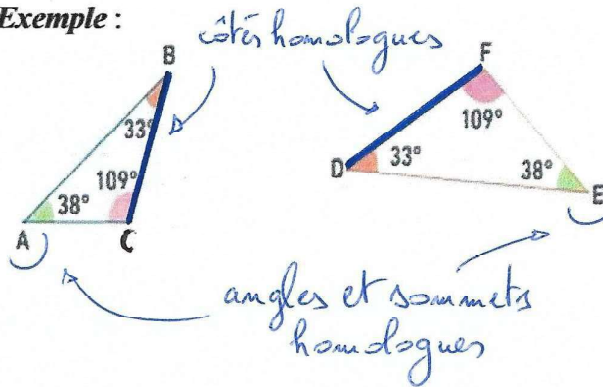 Exemple :
côtés homologues
B
F
33°
109°
D
33°
38°
E
109°
38°
A
C
angles et sommets
homologues